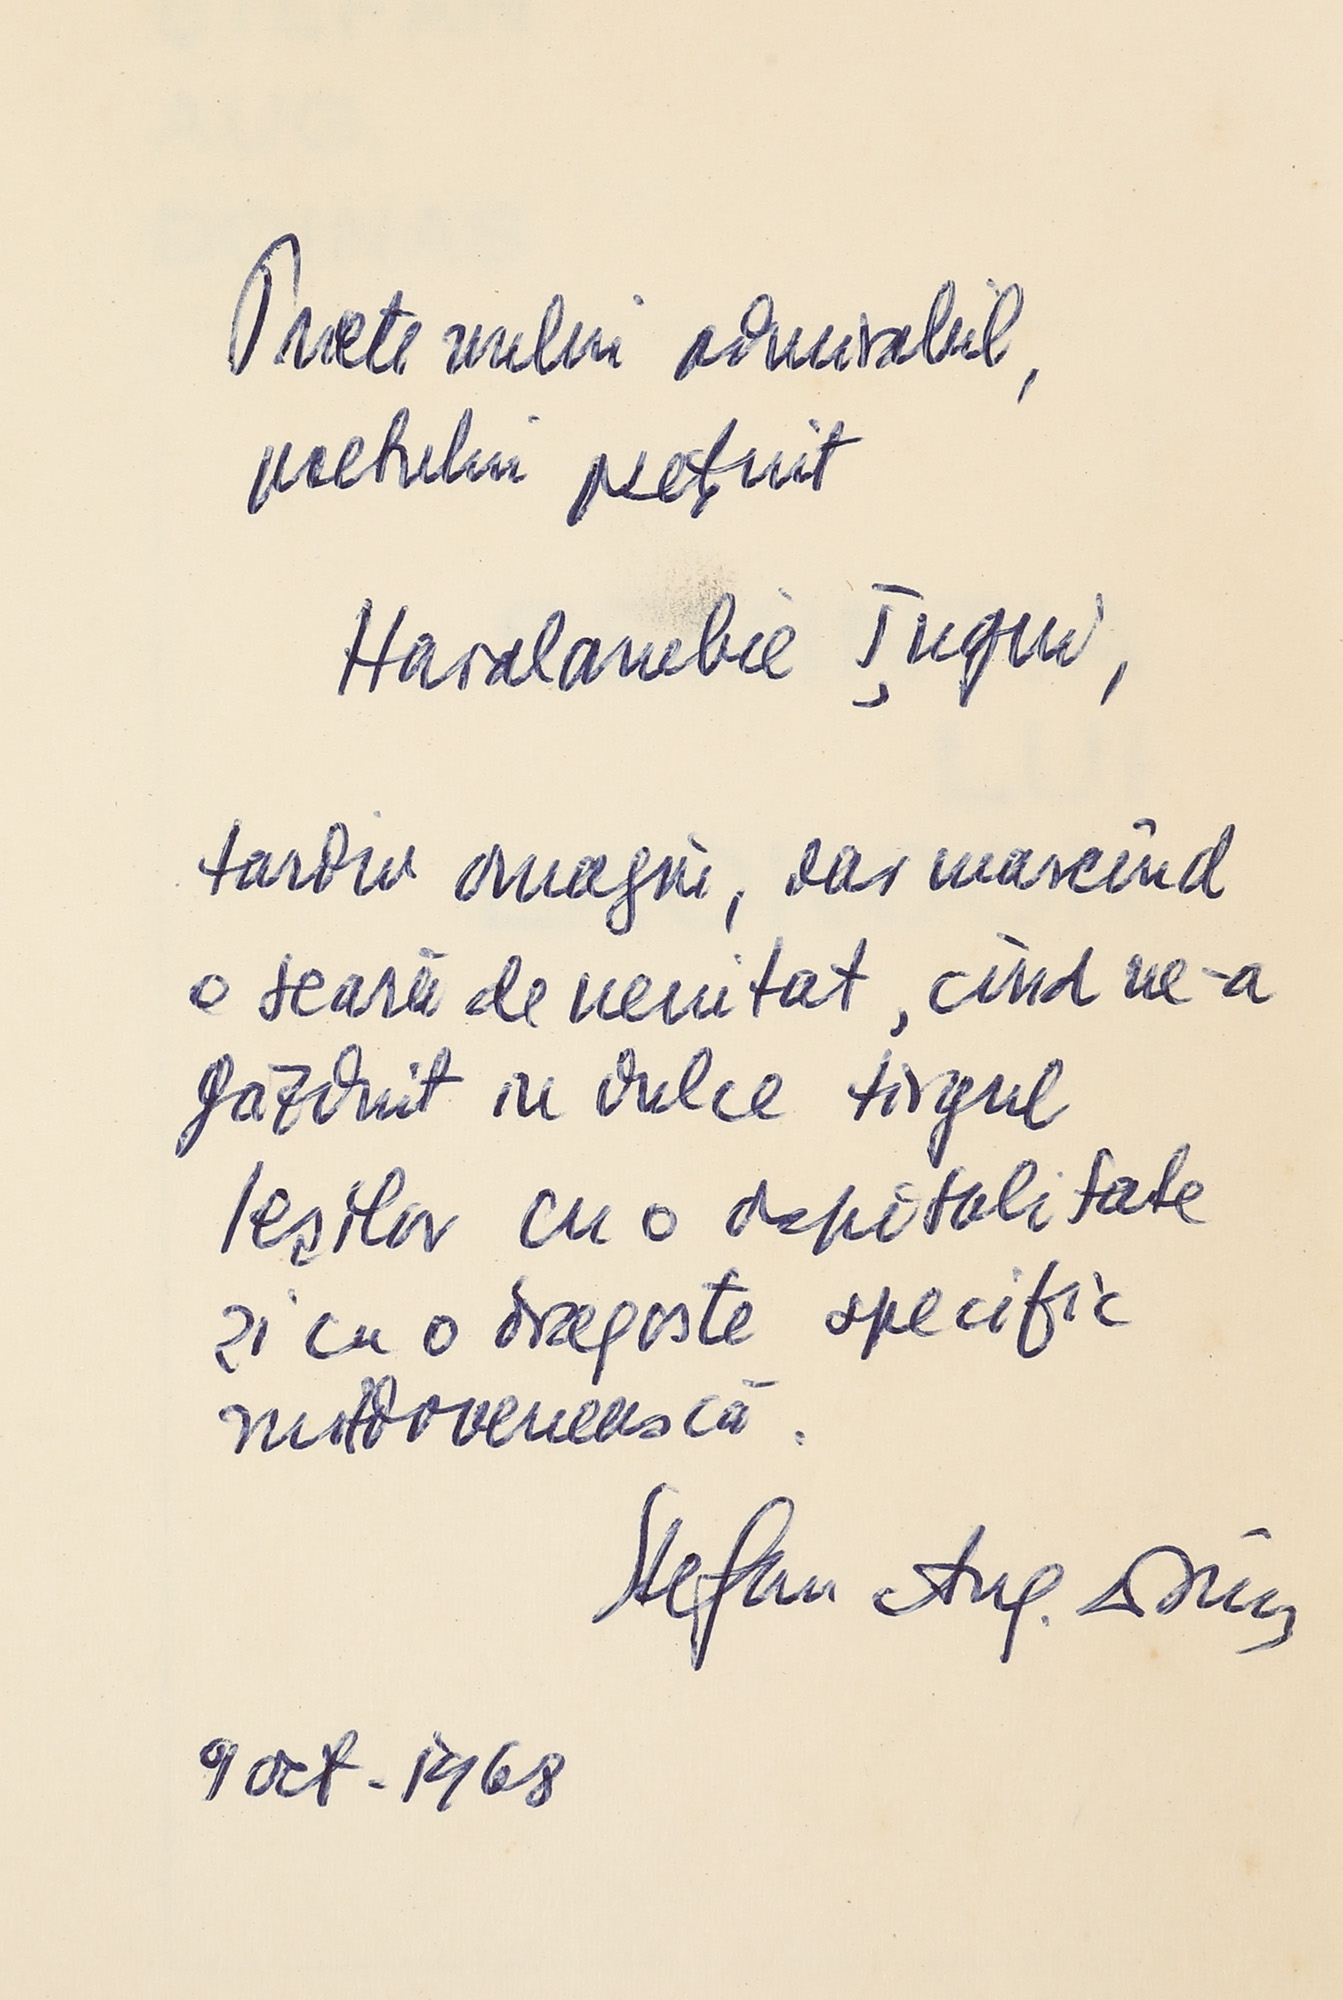 Prietenului admirabil,
poetului prețuit
Haralambie Țugui,
tardiv omagiu, dar marcînd
o seară de neuitat, cînd ne-a
găzduit în dulce tîrgul
Ieșilor cu o ospitalitate
și cu o dragoste specific
moldovenească.
Ștefan Aug. Doinaș
9 oct. 1968